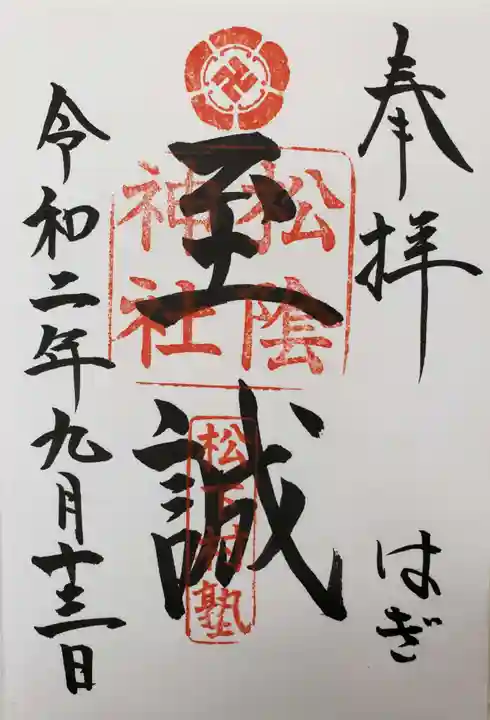 奉拝
はぎ
松陰
神社
至誠
松下村塾
令和二年九月十三日